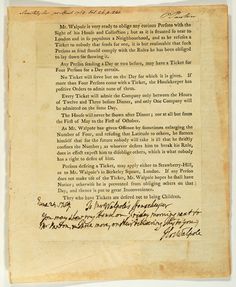 Mr. Walpole is very ready to oblige any curious Persons with the
Sight of his House and Collection; but as it is situated so near to
London and in so populous a Neighbourhood, and as he refuses a
Ticket to nobody that sends for one, it is but reasonable that such
Persons as send should comply with the Rules he has been obliged
to lay down for showing it.
Any Person sending a Day or two before, may have a Ticket for
Four Persons for a Day certain.
No Ticket will serve but on the Day for which it is given. If
more than Four Persons come with a Ticket, the Housekeeper has
positive Orders to admit none of them.
Every Ticket will admit the Company only between the Hours
of Twelve and Three before Dinner, and only one Company will
be admitted on the same Day.
The House will never be shown after Dinner; nor at all but from
the First of May to the First of October.
As Mr. Walpole has given Offence by sometimes enlarging the
Number of Four, and refusing that Latitude to others, he flatters
himself that for the future nobody will take it ill that he strictly
confines the Number; as whoever desires him to break his Rule,
does in effect expect him to disoblige others, which is what nobody
has a right to desire of him.
Persons desiring a Ticket, may apply either to Strawberry-Hill,
or to Mr. Walpole's in Berkeley Square, London. If any Person
does not make use of the Ticket, Mr. Walpole hopes he shall have
Notice; otherwise he is prevented from obliging others on that
Day, and thence is put to great Inconvenience.
They who have Tickets are desired not to bring Children.
To Mr Walpole's Housekeeper
You may show my House on Friday morning next to
on their delivering this to you
Hor. Walpole